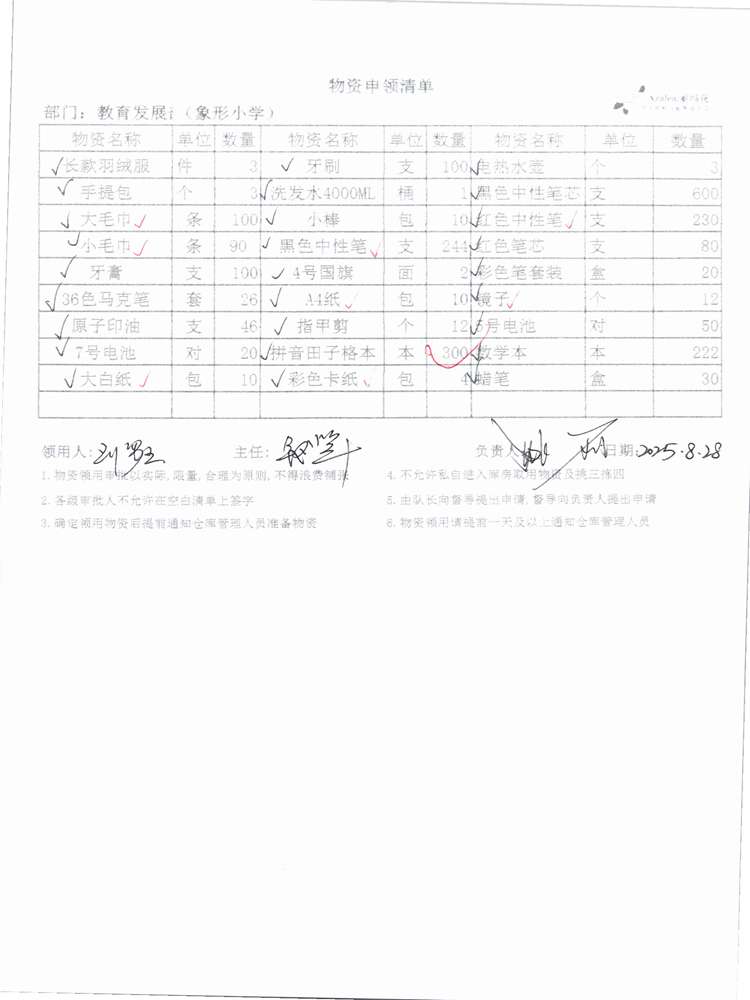 物资申领清单
部门：教育发展（象形小学）
物资名称 单位 数量 物资名称 单位 数量 物资名称 单位 数量
✓长款羽绒服 件 3 ✓牙刷 支 100 ✓电热水壶 个 3
✓手提包 个 3 ✓洗发水4000ML 桶 1 ✓黑色中性笔芯 支 600
✓大毛巾✓ 条 100 ✓小棒 包 10 ✓红色中性笔✓ 支 230
✓小毛巾✓ 条 90 ✓黑色中性笔✓ 支 244 ✓红色笔芯 支 80
✓牙膏 支 100 ✓4号国旗 面 2 ✓彩色笔套装 盒 20
✓36色马克笔 套 26 ✓A4纸✓ 包 10 ✓镜子✓ 个 12
✓原子印油 支 46 ✓指甲剪 个 12 ✓5号电池 对 50
✓7号电池 对 20 ✓拼音田子格本 本 300 ✓数学本 本 222
✓大白纸✓ 包 10 ✓彩色卡纸✓ 包 4 ✓蜡笔 盒 30
领用人： 主任： 负责人 日期：2025.8.28
1.物资领用审批以实际,限量,合理为原则,不得浪费铺张 4.不允许私自进入库房取用物资及挑三拣四
2.各级审批人不允许在空白清单上签字 5.由队长向督导提出申请,督导向负责人提出申请
3.确定领用物资后提前通知仓库管理人员准备物资 6.物资领用请提前一天及以上通知仓库管理人员